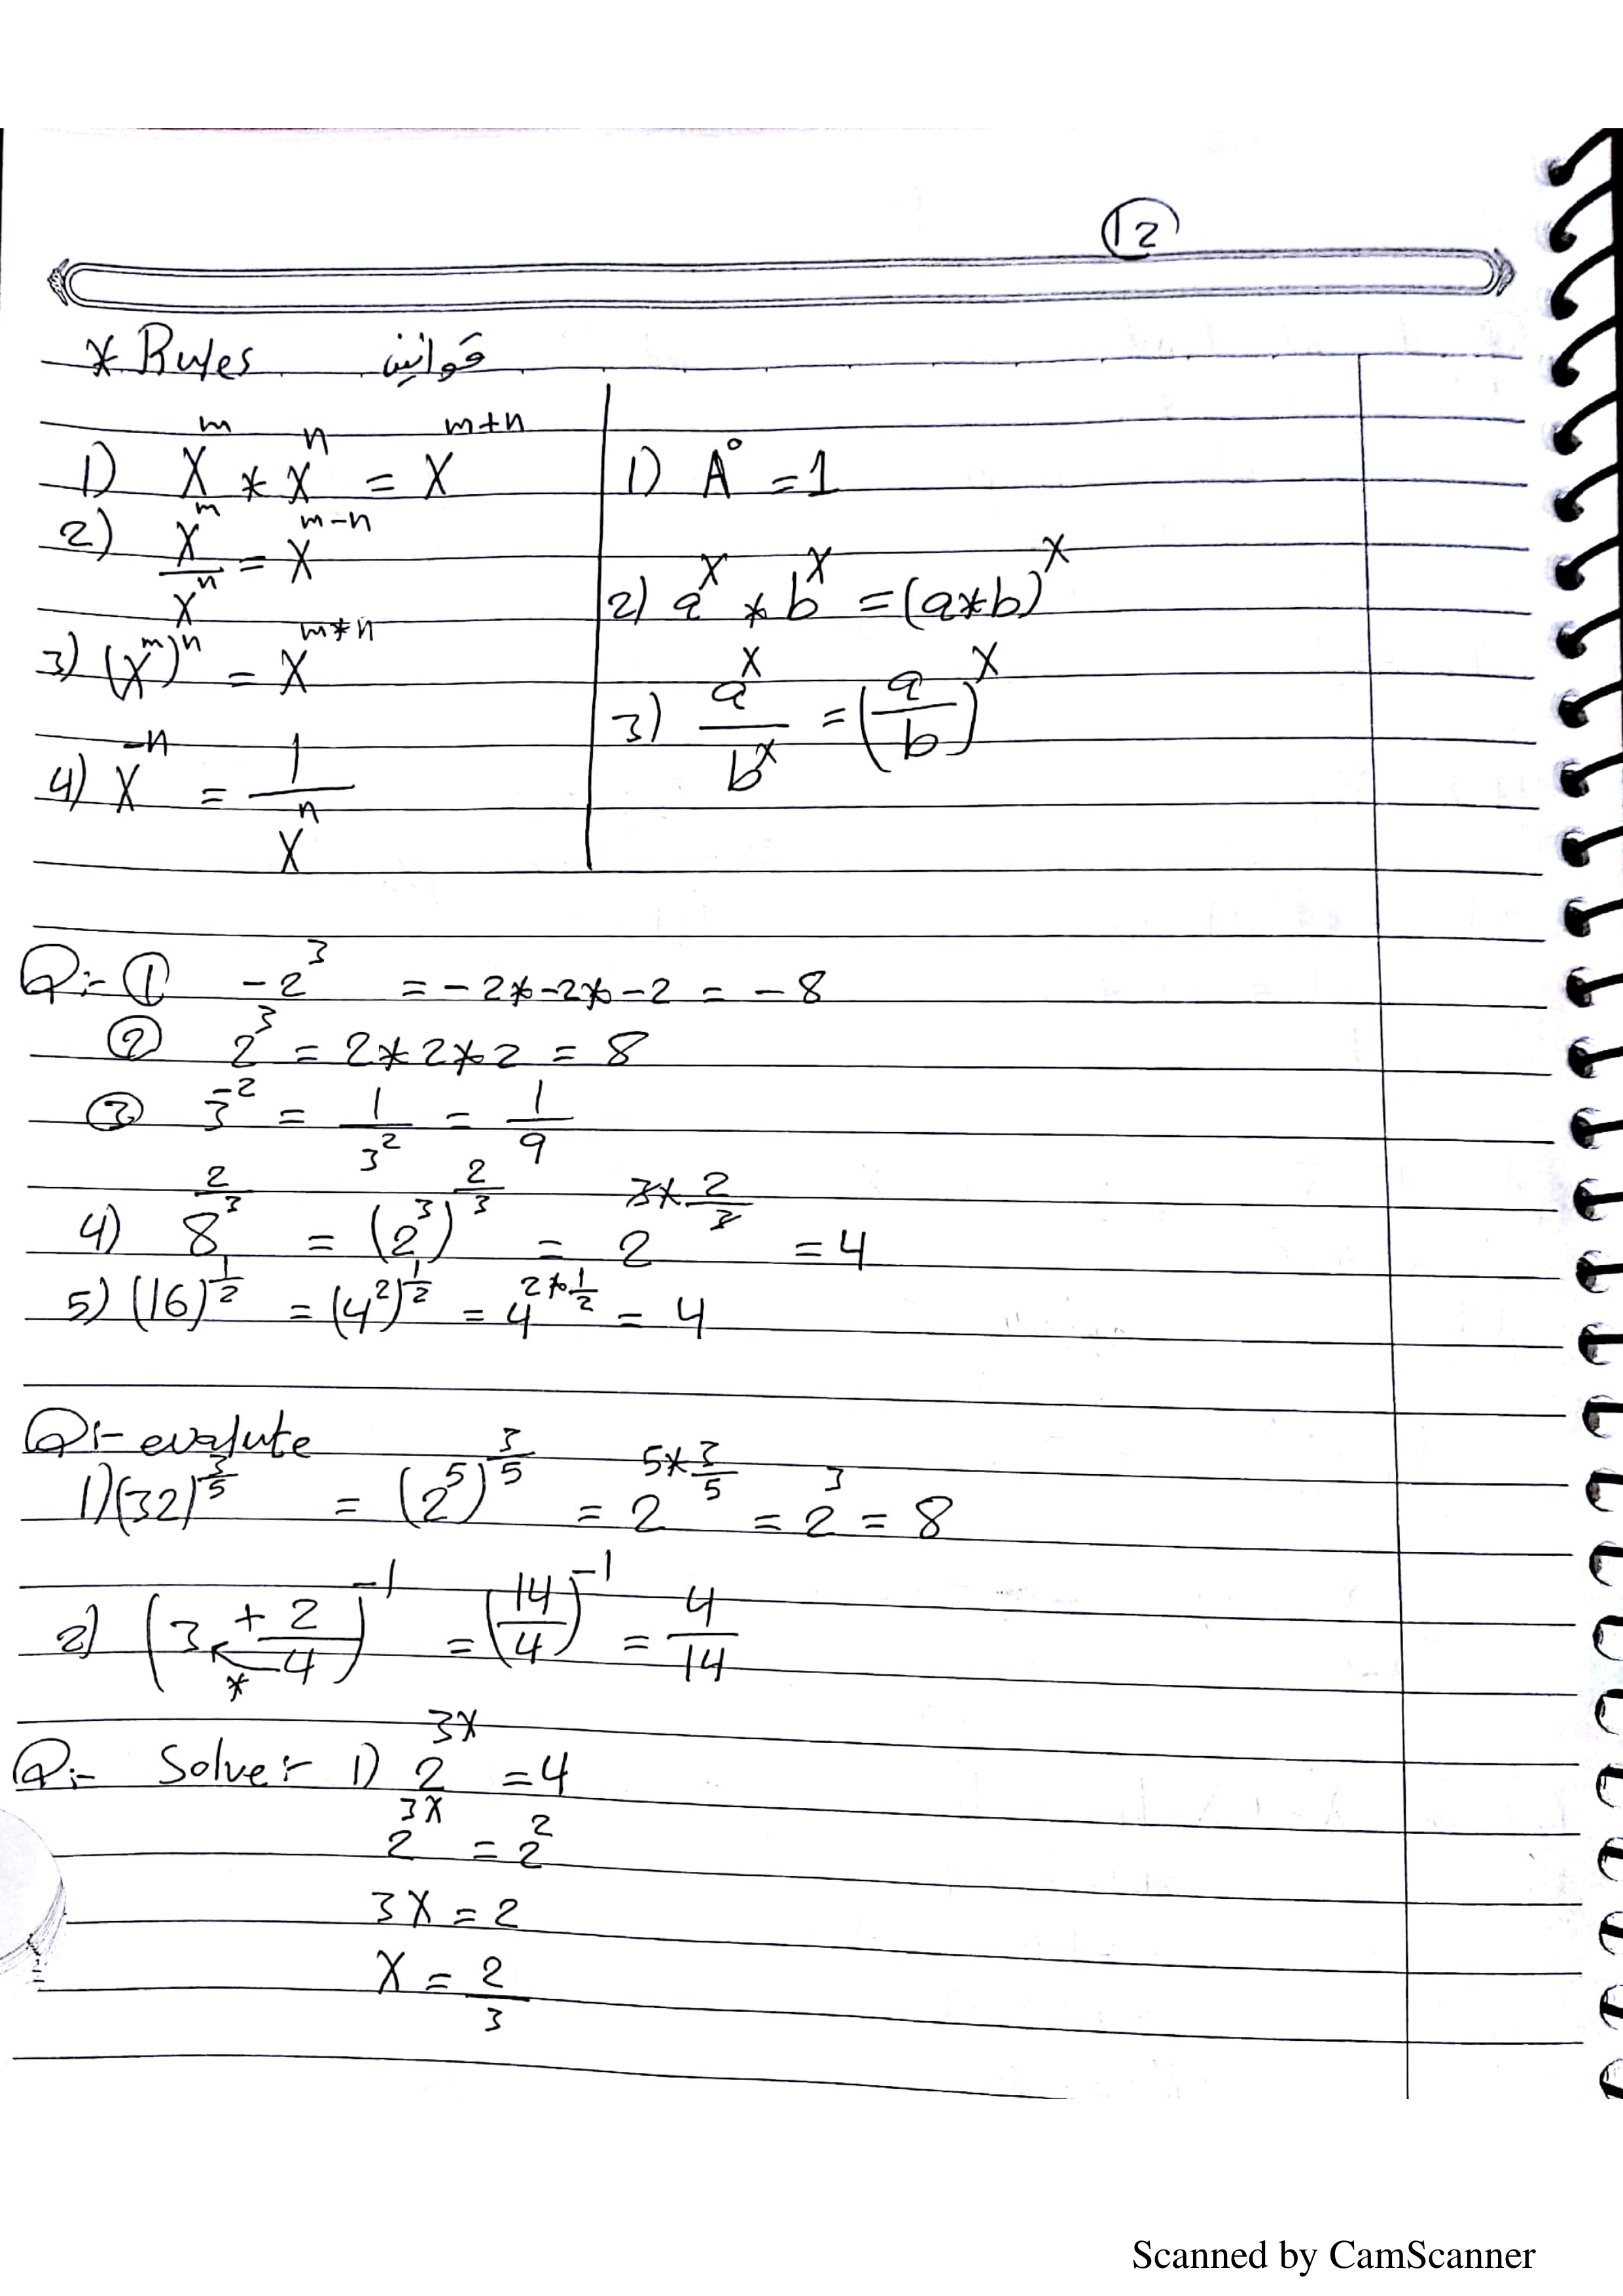 12
* Rules قوانين
1) x^m * x^n = x^(m+n)
2) x^m / x^n = x^(m-n)
3) (x^m)^n = x^(m*n)
4) x^-n = 1 / x^n
1) A° = 1
2) a^x * b^x = (a*b)^x
3) a^x / b^x = (a/b)^x
Q:- ① -2^3 = -2*-2*-2 = -8
② 2^3 = 2*2*2 = 8
③ 3^-2 = 1/3^2 = 1/9
4) 8^(2/3) = (2^3)^(2/3) = 2^(3*2/3) = 4
5) (16)^(1/2) = (4^2)^(1/2) = 4^(2*1/2) = 4
Q:- evalute
1) (32)^(3/5) = (2^5)^(3/5) = 2^(5*3/5) = 2^3 = 8
2) (3 + 2/4)^-1 = (14/4)^-1 = 4/14
*
Q:- Solve:- 1) 2^(3x) = 4
2^(3x) = 2^2
3x = 2
x = 2/3
Scanned by CamScanner